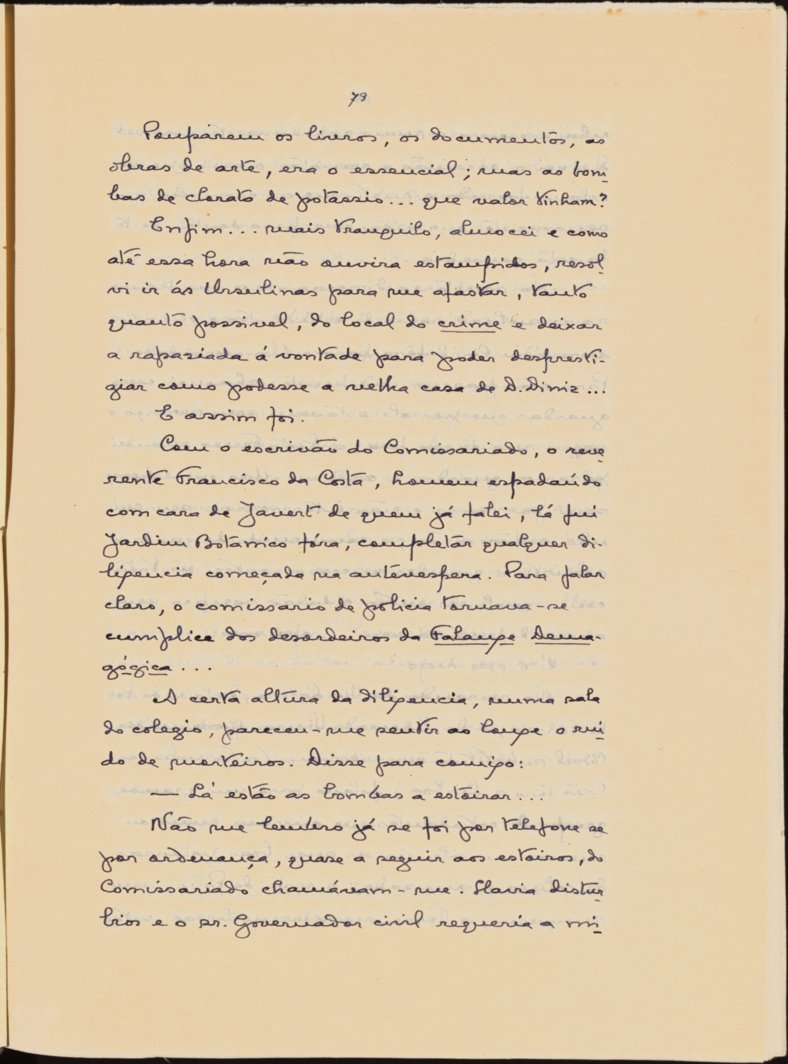 79
Poupárem os livros, os documentos, as
obras de arte, era o essencial; mas as bom-
bas de clorato de potássio... que valor tinham?
Enfim... mais tranquilo, almocei e como
até essa hora não ouvira estampidos, resol-
vi ir ás Ursulinas para me afastar, tanto
quanto possivel, do local do crime e deixar
a rapaziada á vontade para poder despresti-
giar como podesse a velha casa de D. Diniz...
E assim foi.
Com o escrivão do Comissariado, o reve-
rente Francisco da Costa, homem espadaúdo
com cara de Javert de quem já falei, lá fui
Jardim Botanico fóra, completar qualquer di-
ligencia começada na antevespera. Para falar
claro, o comissario de policia tornava-se
cumplice dos desordeiros da Falange Dema-
gógica...
A certa altura da diligencia, numa sala
do colegio, pareceu-me sentir ao longe o rui-
do de morteiros. Disse para comigo:
— Lá estão as bombas a estoirar...
Não me lembro já se foi por telefone se
por ordenança, quase a seguir aos estoiros, do
Comissariado chamávam-me. Havia distur-
bios e o sr. Governador civil requeria a mi-